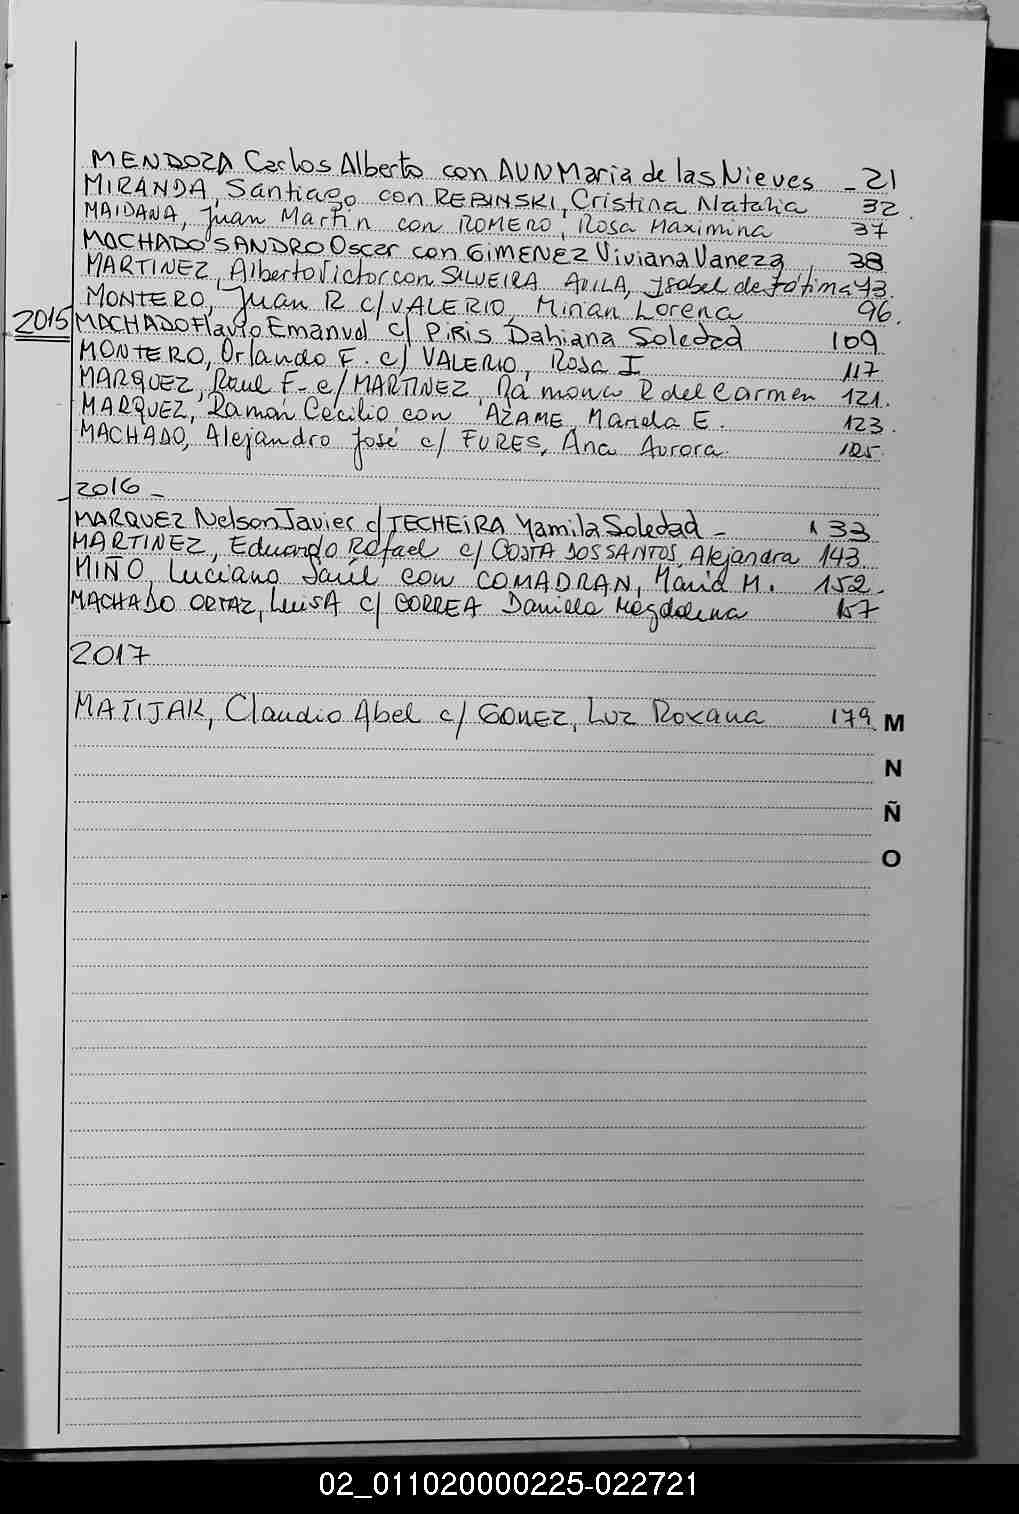 MENDOZA Carlos Alberto con AUN Maria de las Nieves - 21
MIRANDA, Santiago con REBINSKI, Cristina Natalia 32.
MAIDANA, Juan Martin con ROMERO, Rosa Maximina 37
MACHADO SANDRO Oscar con GIMENEZ Viviana Vaneza 38
MARTINEZ, Alberto Victor con SILVEIRA AVILA, Isabel de Fátima 43.
MONTERO, Juan R c/ VALERIO, Mirian Lorena 96.
2015 MACHADO Flavio Emanuel c/ PIRIS Dahiana Soledad 109
MONTERO, Orlando F. c/ VALERIO, Rosa I 117
MARQUEZ, Raul F- c/ MARTINEZ, Ramona R del Carmen 121.
MARQUEZ, Ramon Cecilio con AZAME, Mariela E. 123.
MACHADO, Alejandro José c/ FURES, Ana Aurora. 125.
2016 -
MARQUEZ Nelson Javier c/ TECHEIRA Yamila Soledad - 133
MARTINEZ, Eduardo Rafael c/ COSTA DOS SANTOS, Alejandra 143.
MIÑO, Luciano Saúl con COMADRAN, María M. 152.
MACHADO ORTAZ, Luis A c/ CORREA Daniela Magdalena 157
2017
MATIJAK, Claudio Abel c/ GOMEZ, Luz Roxana 179.
M
N
Ñ
O
02_011020000225-022721